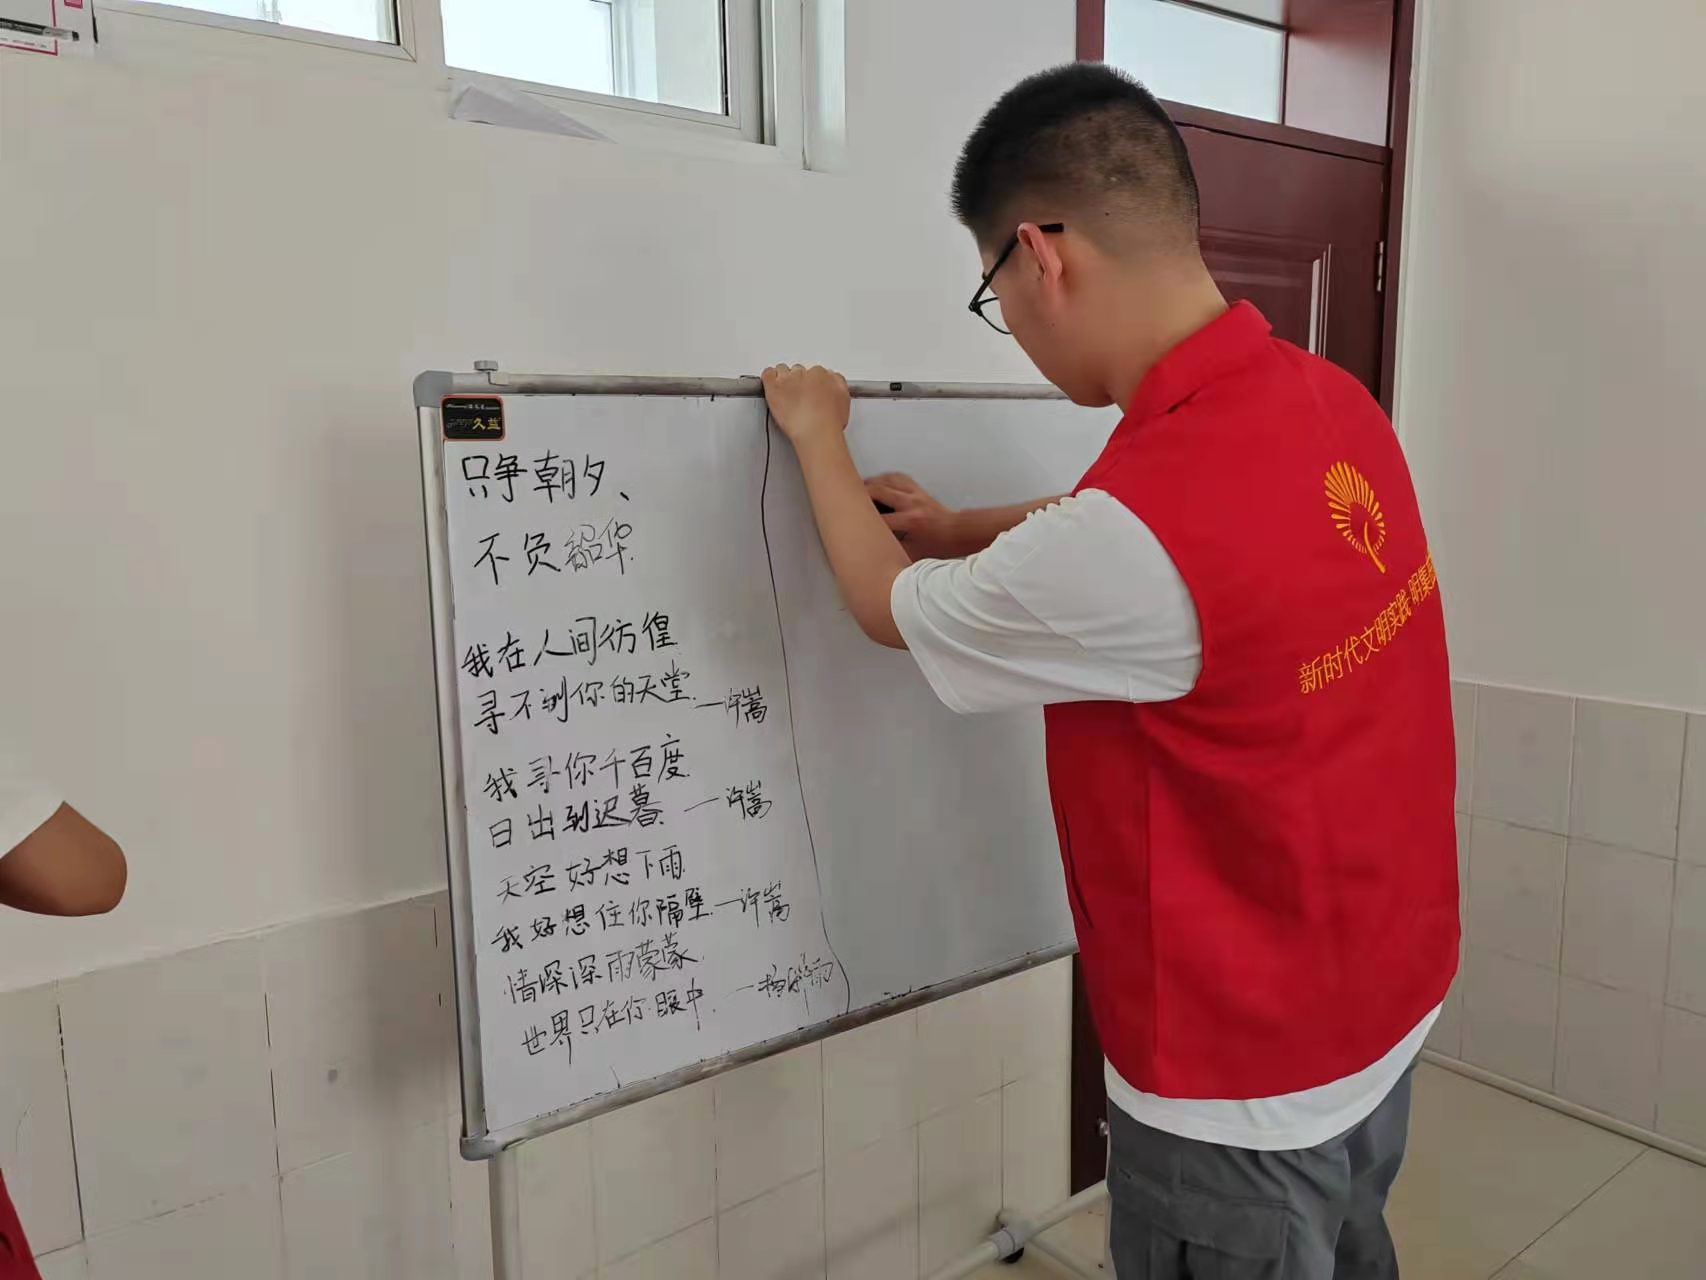 久益
只争朝夕、
不负韶华.
我在人间彷徨
寻不到你的天堂.—许嵩
我寻你千百度
日出到迟暮.—许嵩
天空好想下雨
我好想住你隔壁.—许嵩
情深深雨蒙蒙.
世界只在你眼中.—杨
新时代文明实践·明集